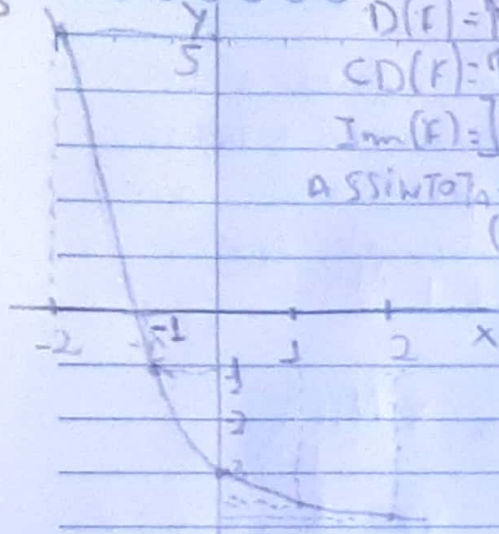 y D(F) =
5 CD(F) =
Im(F) = ]
ASSINTOTA
-2 -1 1 2 x
-1
-2